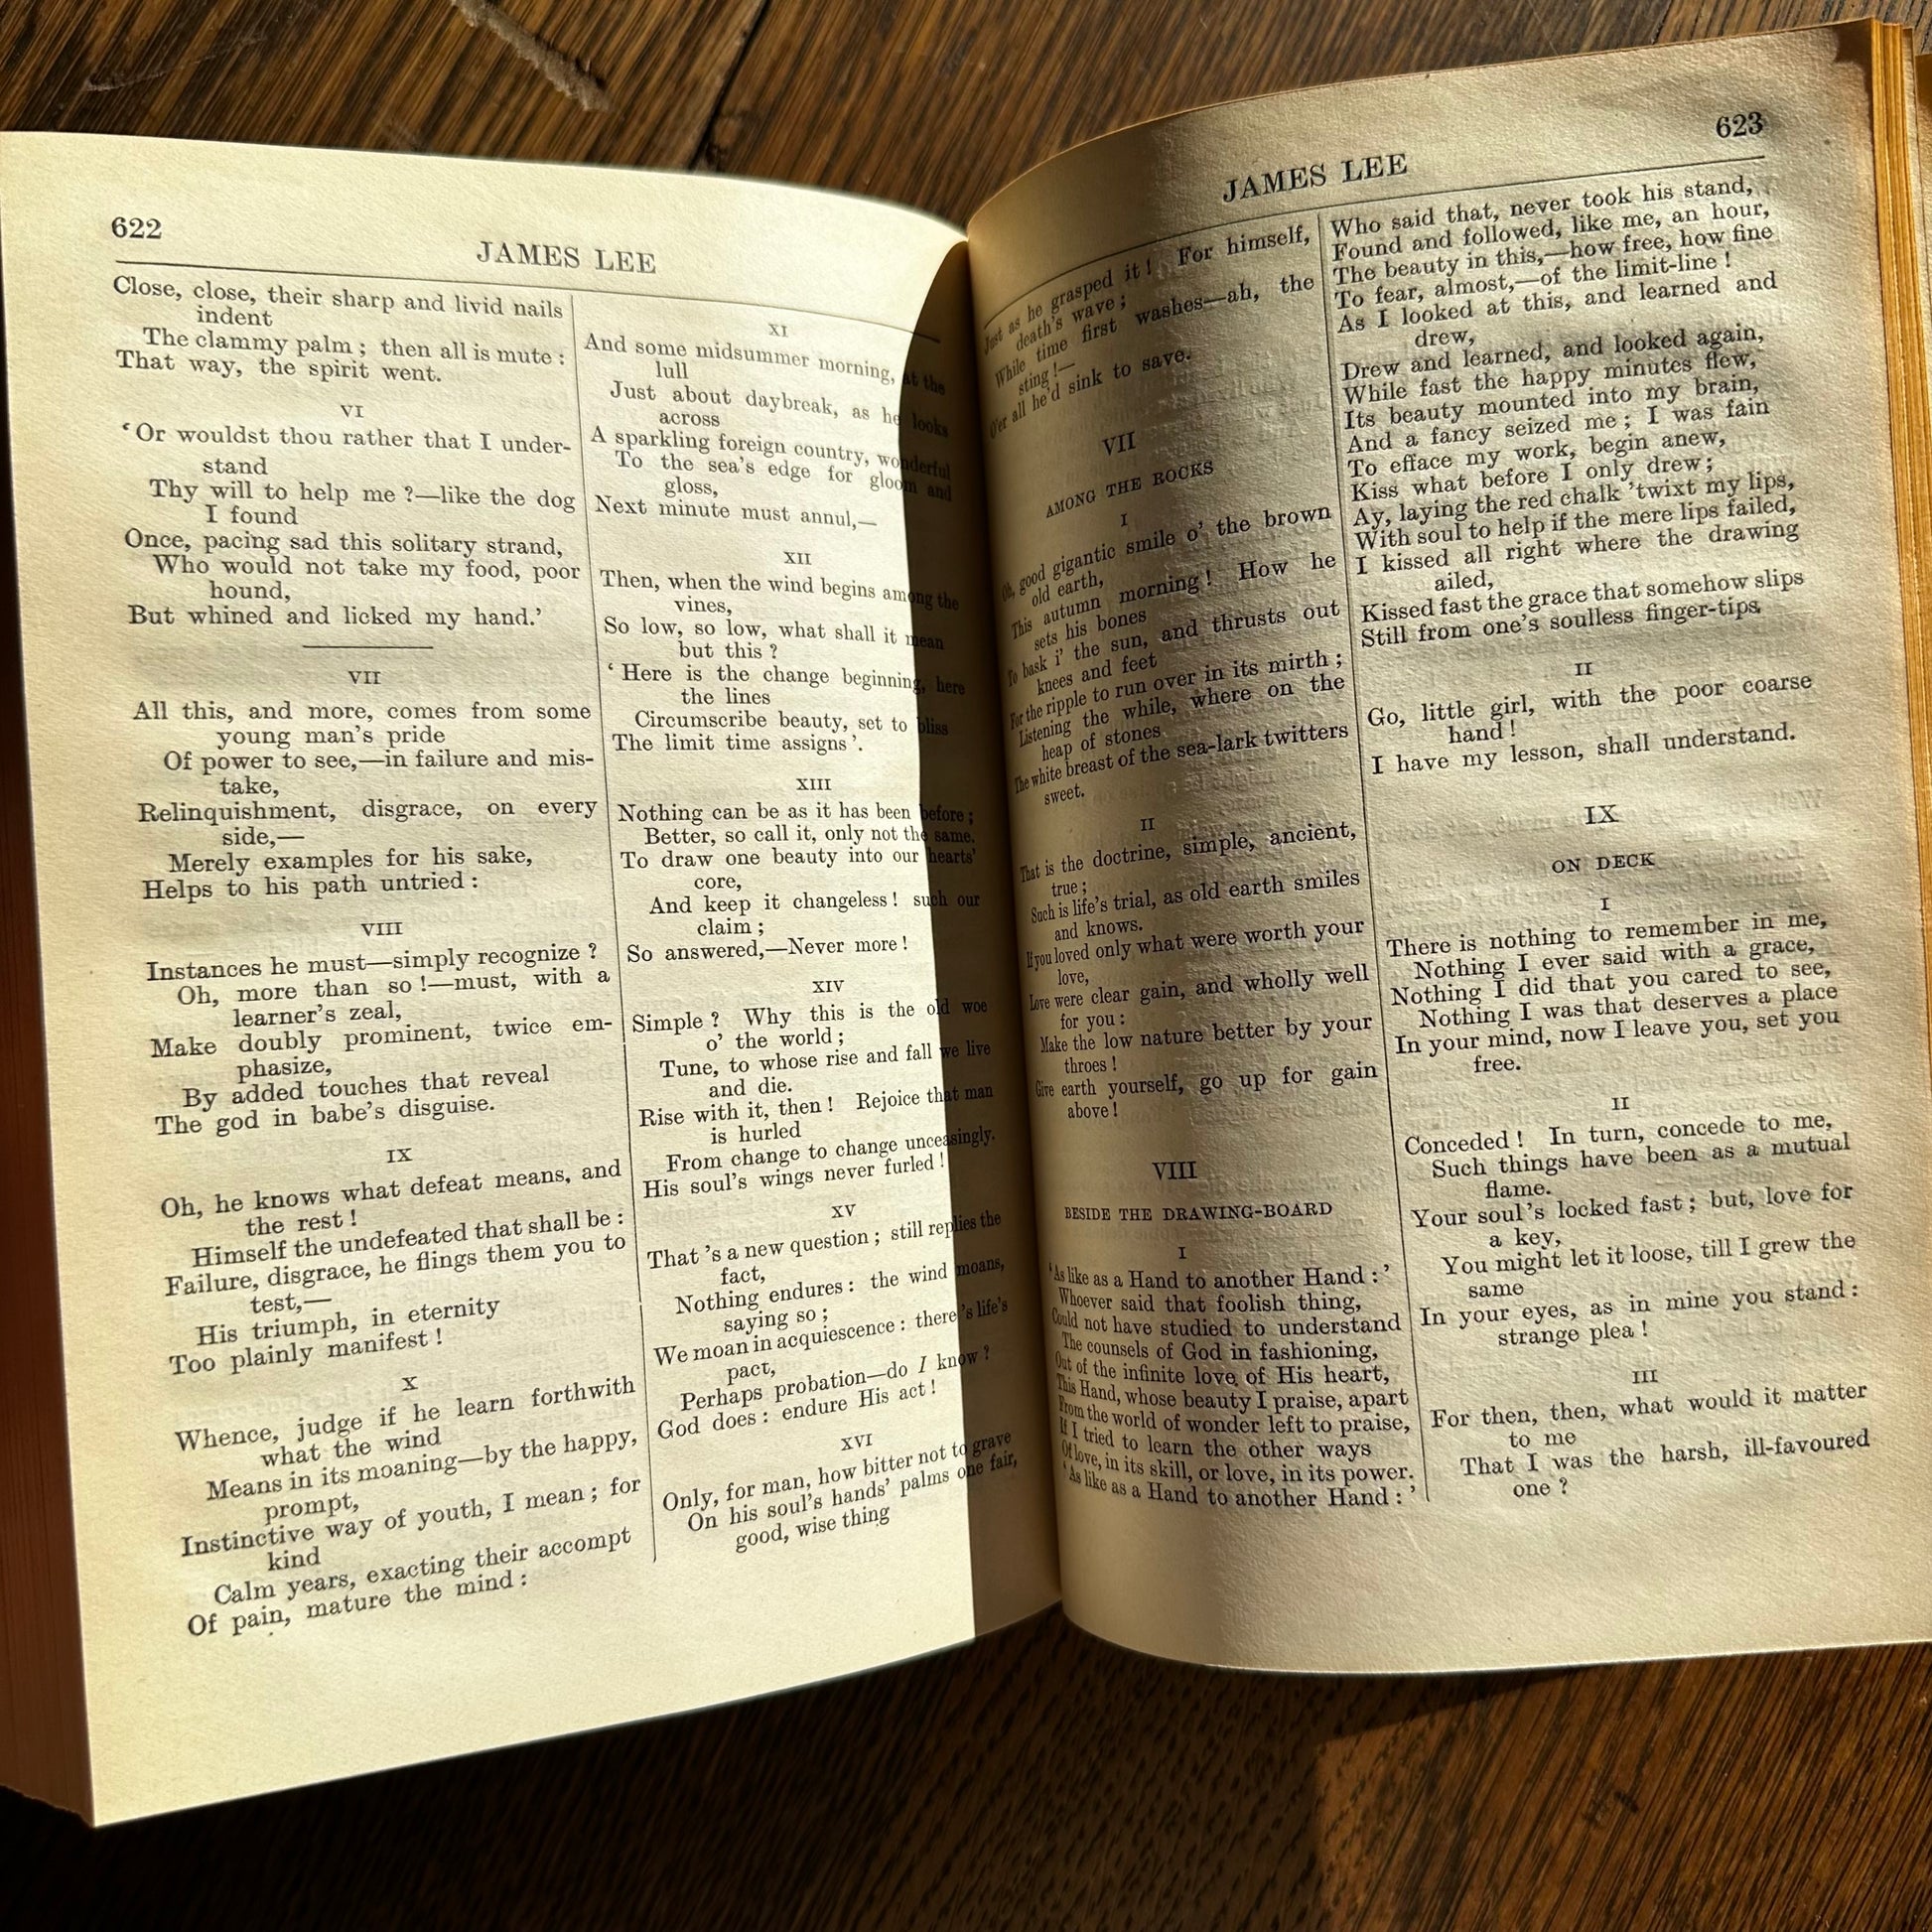 622
JAMES LEE
Close, close, their sharp and livid nails
indent
The clammy palm ; then all is mute :
That way, the spirit went.
VI
‘Or wouldst thou rather that I under-
stand
Thy will to help me ?—like the dog
I found
Once, pacing sad this solitary strand,
Who would not take my food, poor
hound,
But whined and licked my hand.’
VII
All this, and more, comes from some
young man's pride
Of power to see,—in failure and mis-
take,
Relinquishment, disgrace, on every
side,—
Merely examples for his sake,
Helps to his path untried :
VIII
Instances he must—simply recognize ?
Oh, more than so !—must, with a
learner's zeal,
Make doubly prominent, twice em-
phasize,
By added touches that reveal
The god in babe's disguise.
IX
Oh, he knows what defeat means, and
the rest !
Himself the undefeated that shall be :
Failure, disgrace, he flings them you to
test,—
His triumph, in eternity
Too plainly manifest !
X
Whence, judge if he learn forthwith
what the wind
Means in its moaning—by the happy,
prompt,
Instinctive way of youth, I mean ; for
kind
Calm years, exacting their accompt
Of pain, mature the mind :
XI
And some midsummer morning, at the
lull
Just about daybreak, as he looks
across
A sparkling foreign country, wonderful
To the sea's edge for gloom and
gloss,
Next minute must annul,—
XII
Then, when the wind begins among the
vines,
So low, so low, what shall it mean
but this ?
‘ Here is the change beginning, here
the lines
Circumscribe beauty, set to bliss
The limit time assigns’.
XIII
Nothing can be as it has been before ;
Better, so call it, only not the same.
To draw one beauty into our hearts'
core,
And keep it changeless ! such our
claim ;
So answered,—Never more !
XIV
Simple ? Why this is the old woe
o' the world ;
Tune, to whose rise and fall we live
and die.
Rise with it, then ! Rejoice that man
is hurled
From change to change unceasingly.
His soul's wings never furled !
XV
That 's a new question ; still replies the
fact,
Nothing endures : the wind moans,
saying so ;
We moan in acquiescence : there 's life's
pact,
Perhaps probation—do I know ?
God does : endure His act !
XVI
Only, for man, how bitter not to grave
On his soul's hands' palms one fair,
good, wise thing
623
JAMES LEE
Just as he grasped it ! For himself,
death's wave ;
While time first washes—ah, the
sting !—
O'er all he'd sink to save.
VII
AMONG THE ROCKS
I
Oh, good gigantic smile o' the brown
old earth,
This autumn morning ! How he
sets his bones
To bask i' the sun, and thrusts out
knees and feet
For the ripple to run over in its mirth ;
Listening the while, where on the
heap of stones
The white breast of the sea-lark twitters
sweet.
II
That is the doctrine, simple, ancient,
true ;
Such is life's trial, as old earth smiles
and knows.
If you loved only what were worth your
love,
Love were clear gain, and wholly well
for you :
Make the low nature better by your
throes !
Give earth yourself, go up for gain
above !
VIII
BESIDE THE DRAWING-BOARD
I
‘As like as a Hand to another Hand :’
Whoever said that foolish thing,
Could not have studied to understand
The counsels of God in fashioning,
Out of the infinite love of His heart,
This Hand, whose beauty I praise, apart
From the world of wonder left to praise,
If I tried to learn the other ways
Of love, in its skill, or love, in its power.
‘As like as a Hand to another Hand :’
Who said that, never took his stand,
Found and followed, like me, an hour,
The beauty in this,—how free, how fine
To fear, almost,—of the limit-line !
As I looked at this, and learned and
drew,
Drew and learned, and looked again,
While fast the happy minutes flew,
Its beauty mounted into my brain,
And a fancy seized me ; I was fain
To efface my work, begin anew,
Kiss what before I only drew ;
Ay, laying the red chalk 'twixt my lips,
With soul to help if the mere lips failed,
I kissed all right where the drawing
ailed,
Kissed fast the grace that somehow slips
Still from one's soulless finger-tips.
II
Go, little girl, with the poor coarse
hand !
I have my lesson, shall understand.
IX
ON DECK
I
There is nothing to remember in me,
Nothing I ever said with a grace,
Nothing I did that you cared to see,
Nothing I was that deserves a place
In your mind, now I leave you, set you
free.
II
Conceded ! In turn, concede to me,
Such things have been as a mutual
flame.
Your soul's locked fast ; but, love for
a key,
You might let it loose, till I grew the
same
In your eyes, as in mine you stand :
strange plea !
III
For then, then, what would it matter
to me
That I was the harsh, ill-favoured
one ?